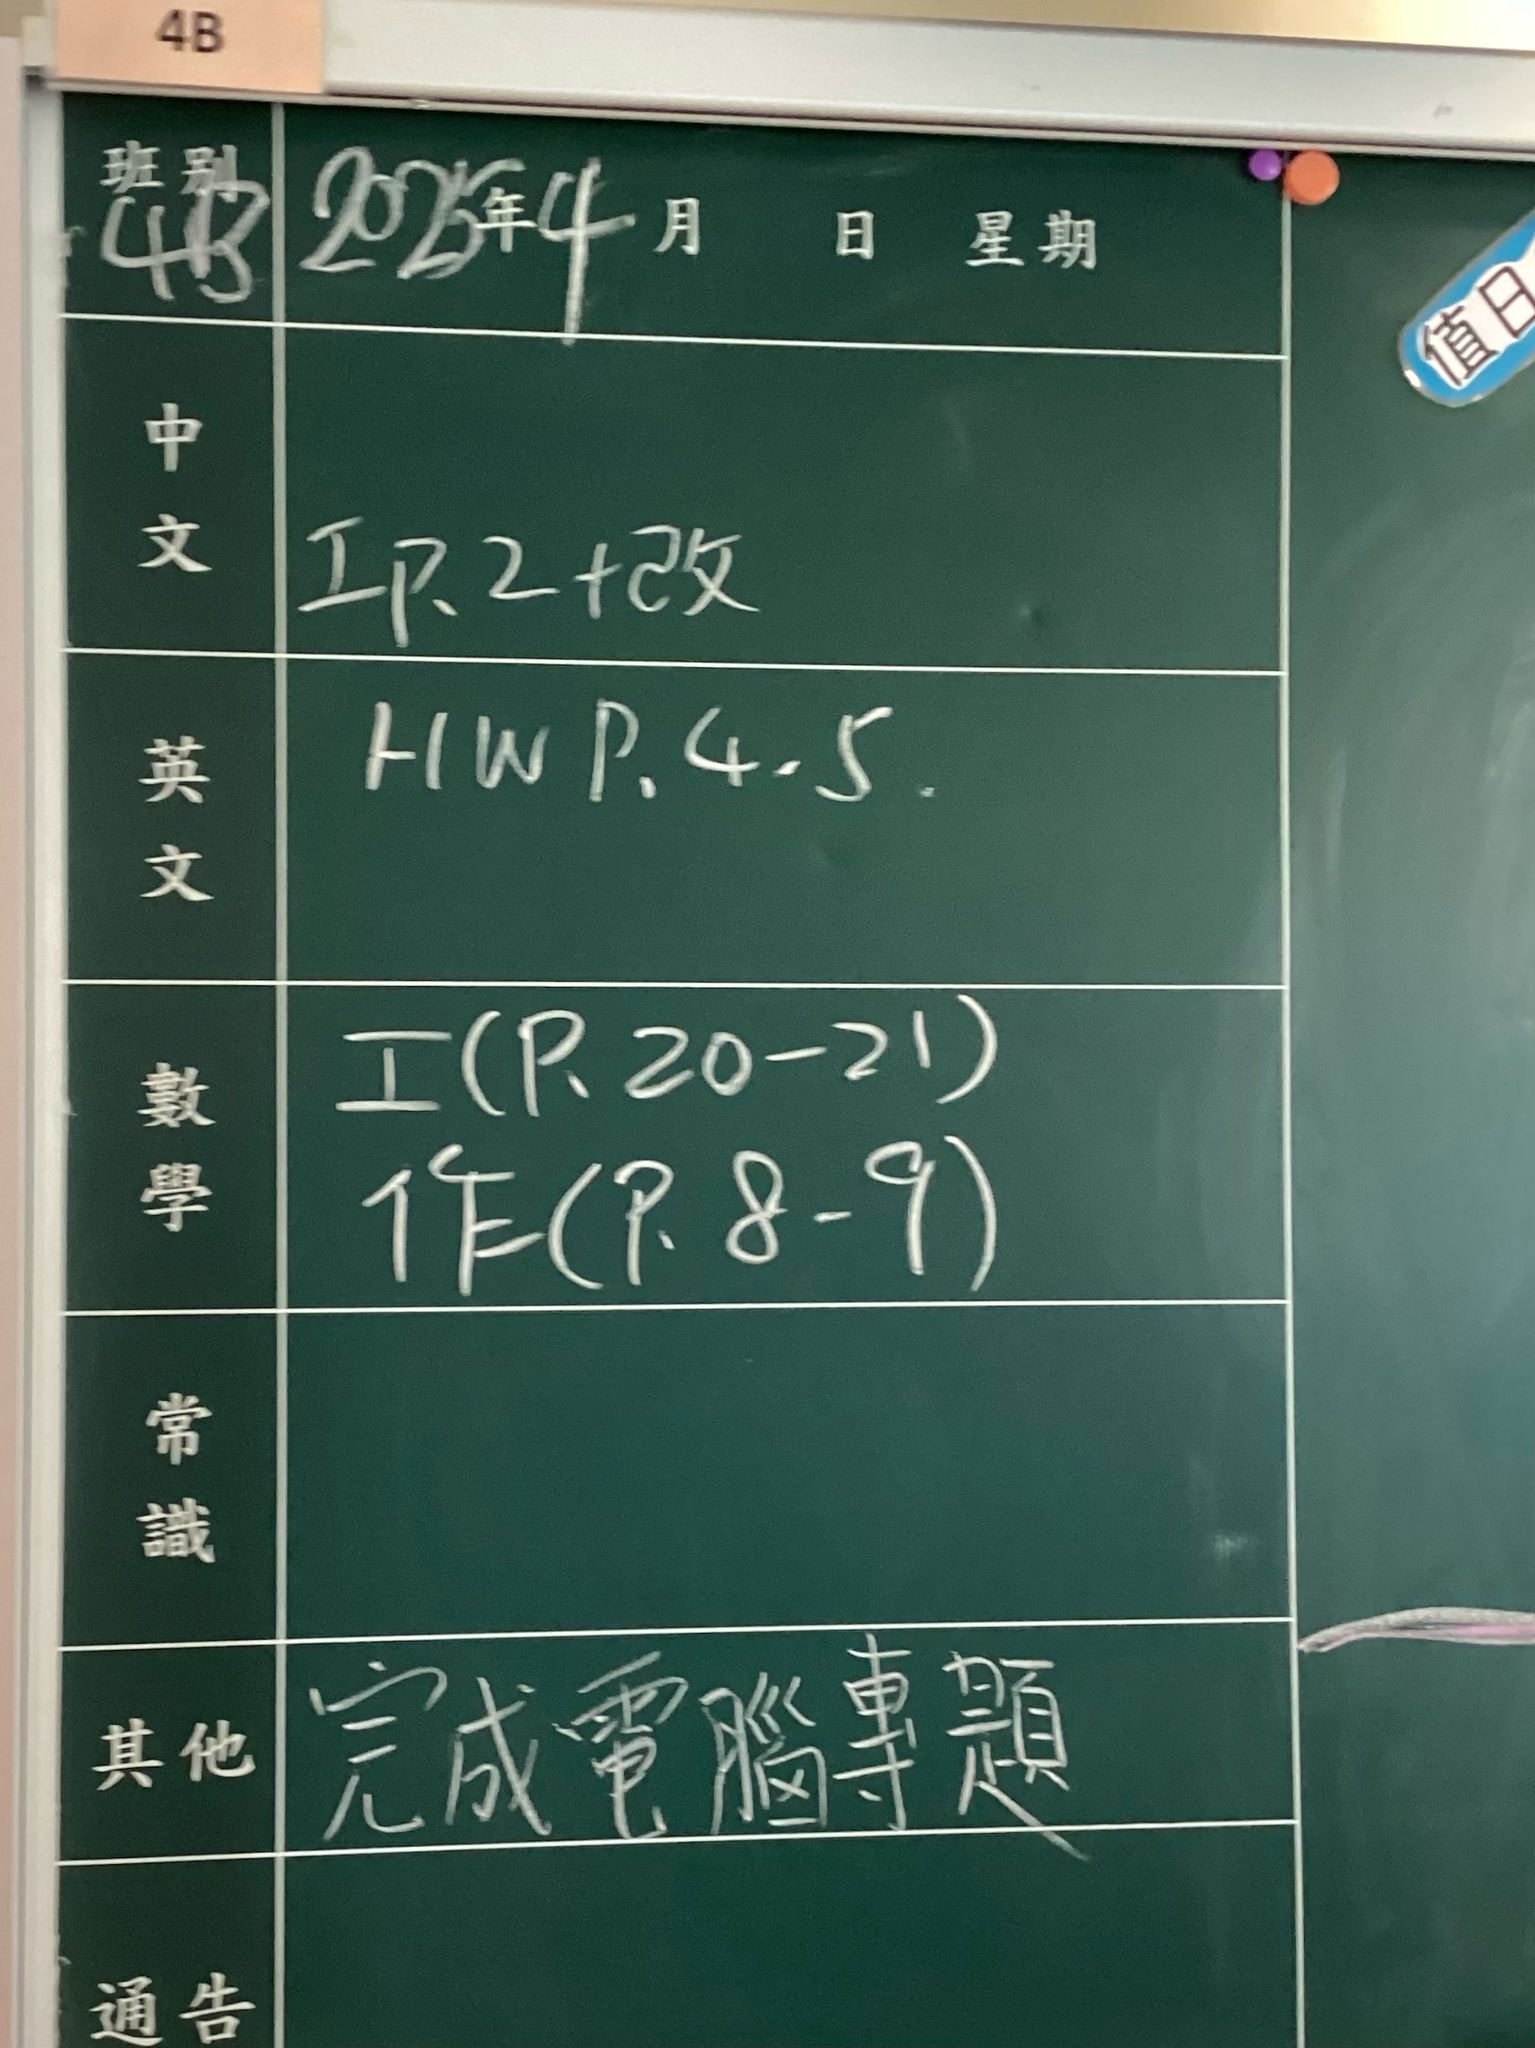 4B
班別 2025年4月 日 星期
4B
值日
中文
工P.2+改
英文
HW P.4-5.
數學
工(P.20-21)
作(P.8-9)
常識
其他
完成電腦專題
通告